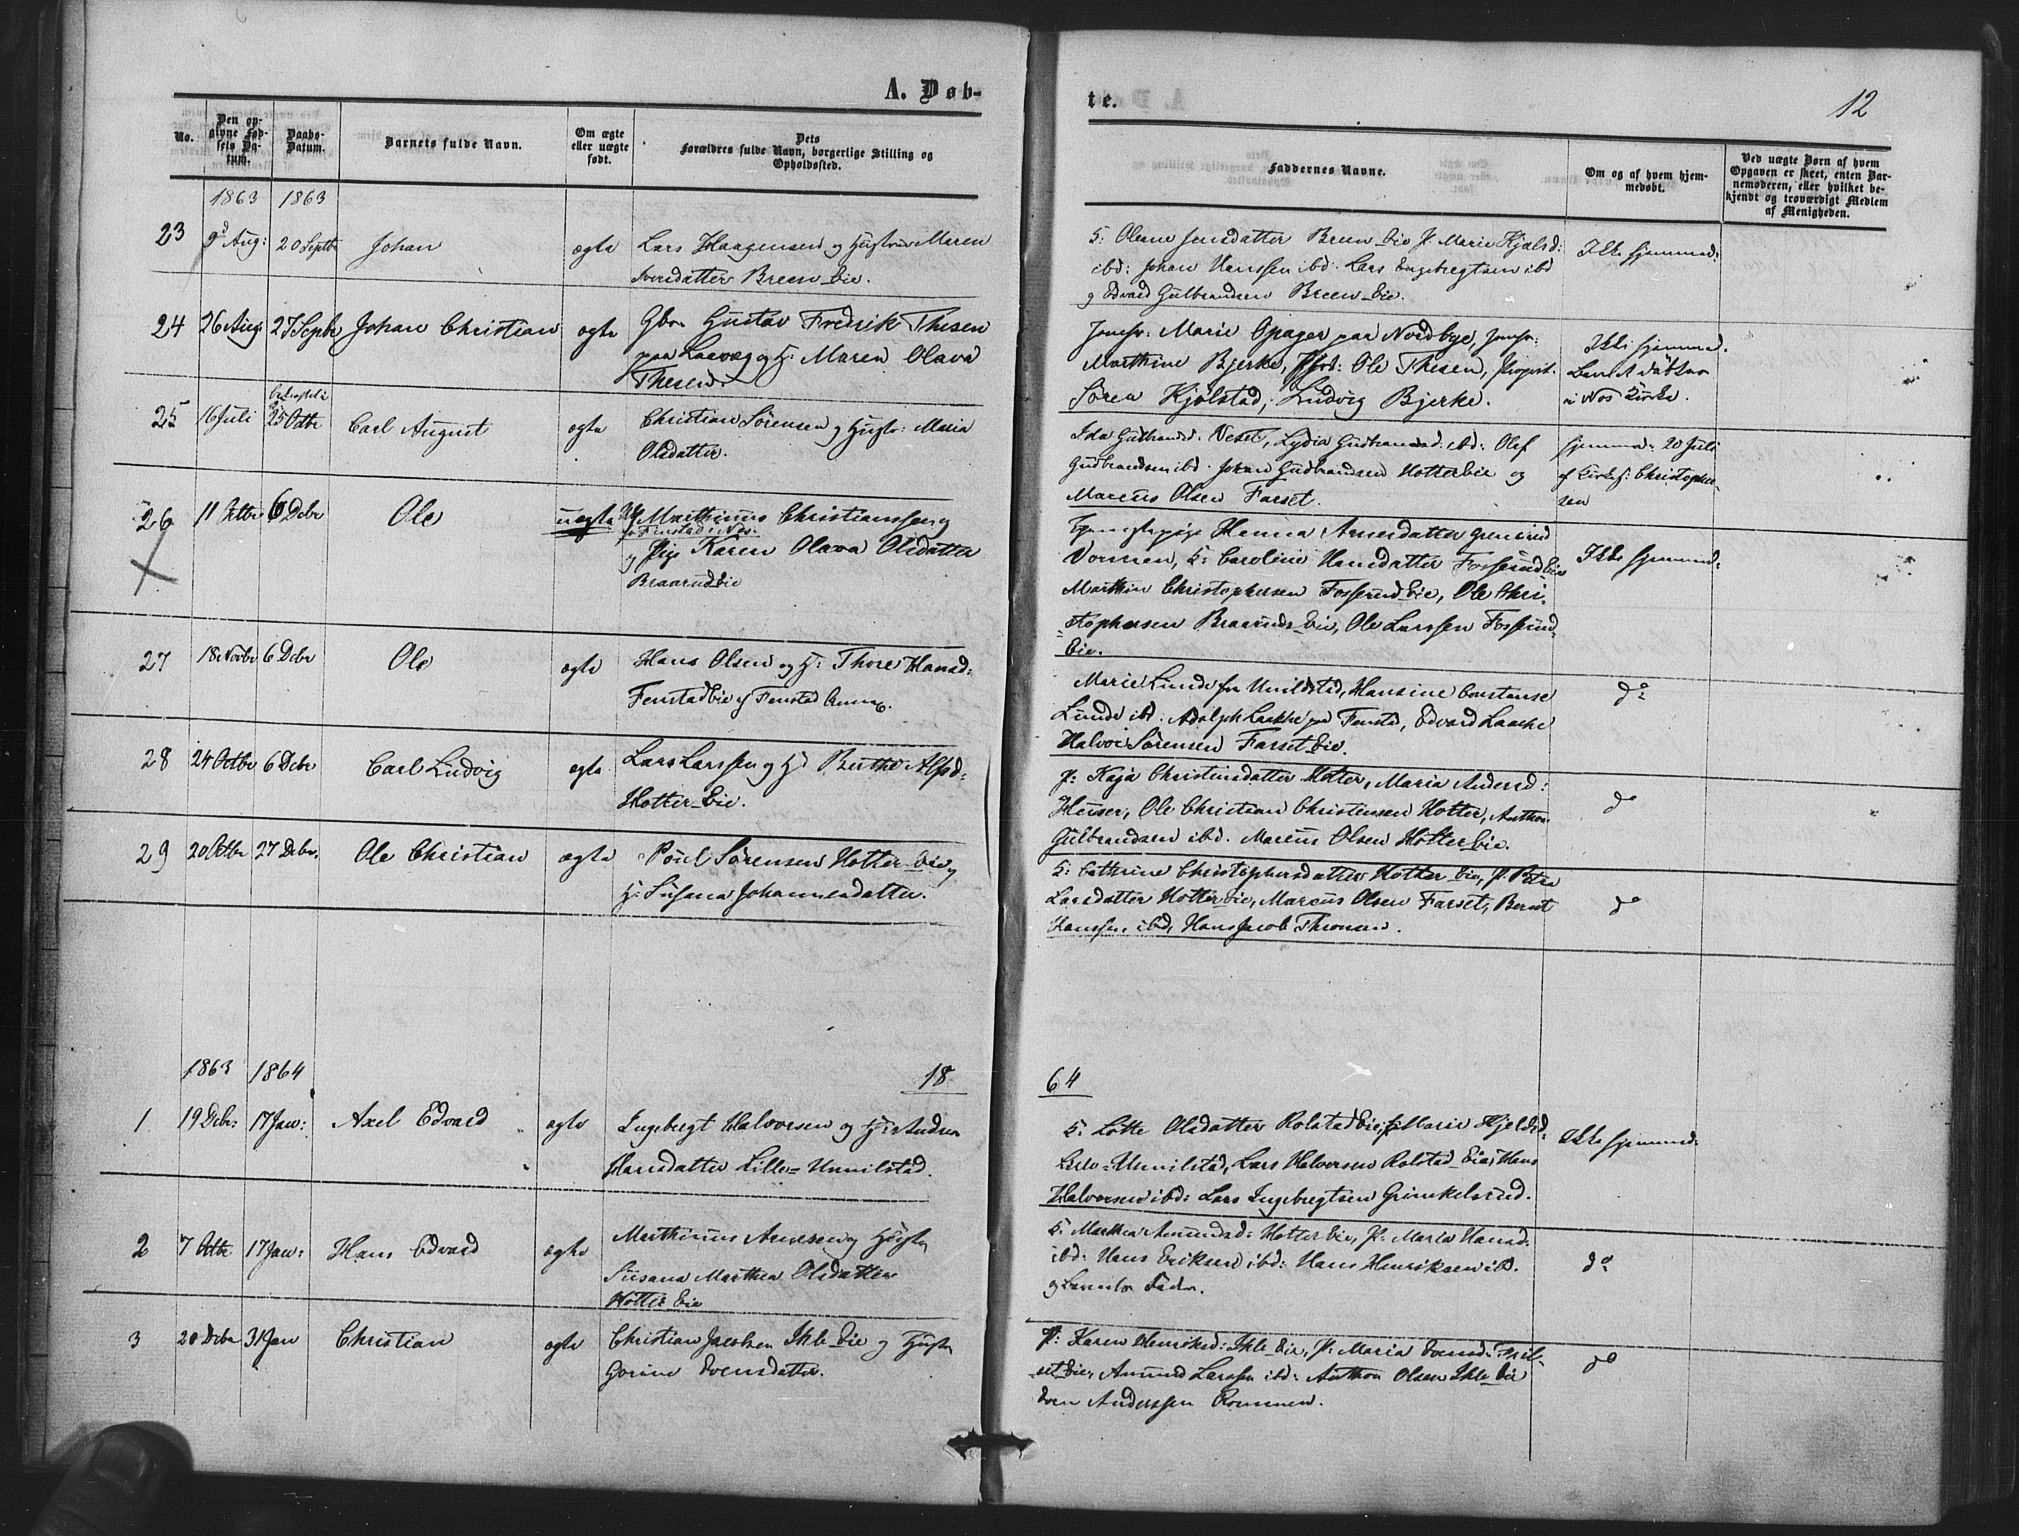 A. Døb-
te.
12
No.
Den op-
givne Fød-
sels Da-
tum.
Daabs-
Datum.
Barnets fulde Navn.
Om ægte
eller uægte
født.
Dets
Forældres fulde Navn, borgerlige Stilling og
Opholdssted.
Faddernes Navne.
Om og af hvem hjem-
medøbt.
Ved uægte Børn af hvem
Opgaven er skeet, enten Bar-
nemoderen, eller hvilket be-
kjendt og troværdigt Medlem
af Menigheden.
1863 1863
23 9d Aug: 20 Septbr Johan ægte Lars Haagensen og Hustru Maren
Iversdatter Breen Eie.
K: Oleane Jensdatter Breen Eie P. Marie Kjelsd:
ibd: Johan Hanssen ibd. Lars Engebregtsen ibd
og Edvard Gulbrandsen Breen Eie.
Ikke hjemmed:
24 26 Aug: 27 Septbr Johan Christian ægte Gbr. Gustav Fredrik Thesen
paa Laaveg og H: Maren Olava
Thesen.
Jomfr: Marie Opager paa Nordbye, Jomfr:
Marthine Bjerke, Ole Thesen, Propriet.
Søren Kjølstad, Ludvig Bjerke.
Ikke hjemmed.
Barnet døbt
i Nes Kirke.
25 16 Juli 25 Octbr Carl August ægte Christian Sørensen og Hustr: Maria
Olsdatter.
Ida Gudbrandsd. Veset, Lydia Gudbransd: ibd: Olaf
Gudbrandsen ibd. Johan Gudbrandsen Hotter Eie og
Marcus Olsen Farset.
hjemmed: 20 Juli
af Kirkes: Christopher-
sen
26 11 Octbr 6 Debr Ole uægte Mathinus Christianssen
fr Finstad i Nes.
og Pige Karen Olava Olsdatter
Braarud Eie
Hanna Arnesdatter
Vormen, K: Caroline Hansdatter Fosserud Eie
Marthin Christophersen Fosserud Eie, Ole Chri-
stophersen Braaruds Eie, Ole Larssen Fosserud
Eie.
Ikke hjemmed:
27 18 Novbr 6 Debr Ole ægte Hans Olsen og H: Thore Hansd:
Fenstad Eie af Fenstad
Marie Lunde fra Unildstad, Hansine Constanse
Lunde ibd: Adolph Laache paa Fenstad, Edvard Laache
Halvor Sørensen Farset Eie.
do
28 24 Octbr 6 Debr Carl Ludvig ægte Lars Larssen og H: Berthe Alfsd:
Hotter Eie.
P: Kaja Christensdatter Hotter, Maria Andersd:
Heuser, Ole Christian Christensen Hotter, Anthon
Gulbrandsen ibd. Marcus Olsen Hotter Eie.
do
29 20 Octbr 27 Debr. Ole Christian ægte Poul Sørensen Hotter Eie og
H: Susana Johannesdatter.
K: Cathrine Christophersdatter Hotter Eie, P. Petra
Larsdatter Hotter Eie, Marcus Olsen Farset, Bernt
Hanssen ibd, Hans Jacob Thronsen.
do
1863 1864 18
64
1 19 Debr: 17 Jan: Axel Edvard ægte Ingebregt Halvorsen og Hustr
Hansdatter Lille-Unnilstad.
K: Lotte Olsdatter Rolstad Eie, P: Marie Kjelsd.
Lille-Unnilstad, Lars Halvorsen Rolstad Eie, Hans
Halvorsen ibd: Lars Ingebregtsen Grinkelsrud.
Ikke hjemmed:
2 7 Octbr 17 Jan: Hans Edvard ægte Marthinus Arnesen og Hustr
Susana Marthea Olsdatter
Hotter Eie
K: Marthea Amundsd: Hotter Eie, P. Maria Hansd.
ibd. Hans Eriksen ibd: Hans Henriksen ibd.
og Barnets Fader.
do
3 20 Debr 31 Jan Christian ægte Christian Jacobsen Ihle Eie og Hustr
Gorine Evensdatter.
P: Karen Henriksd: Ihle Eie, P. Maria Evensd.
Eie, Amund Larssen ibd: Anthon Olsen Ihle Eie
Even Anderssen Rommen.
do